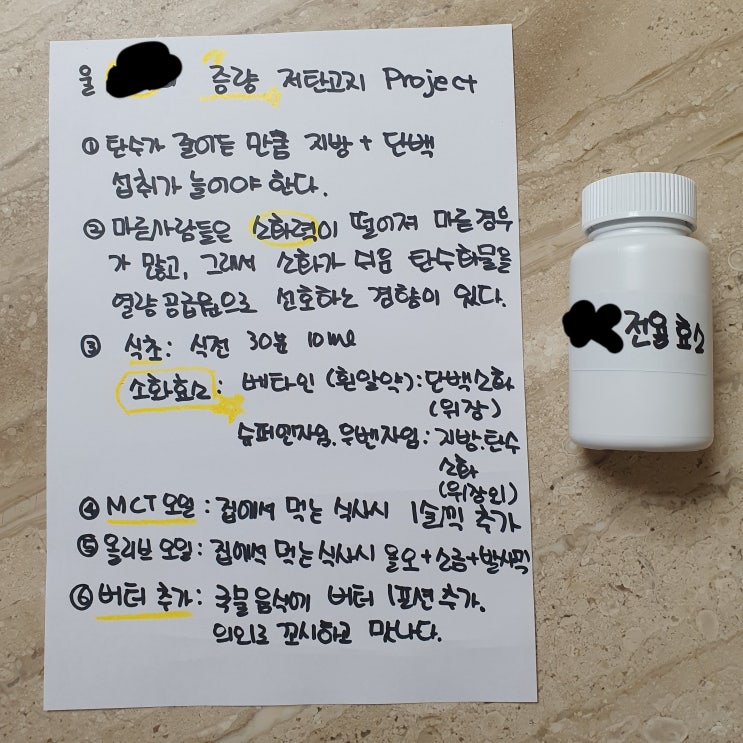 울 증량 저탄고지 Project
① 탄수가 줄어든 만큼 지방 + 단백
섭취가 늘어야 한다.
② 마른사람들은 소화력이 떨어져 마른 경우
가 많고, 그래서 소화가 쉬운 탄수화물을
열량 공급원으로 선호하는 경향이 있다.
③ 식초: 식전 30분 10ml
소화효소: 베타인 (흰알약): 단백소화
(위장)
슈퍼엔자임. 우벤자임: 지방.탄수
소화
(위장외)
④ MCT 오일: 집에서 먹는 식사시 1술씩 추가
⑤ 올리브 오일: 집에서 먹는 식사시 올오+소금+발사믹
⑥ 버터 추가: 국물 음식에 버터 1포션 추가.
의외로 꼬시하고 맛나다.
전용 효소